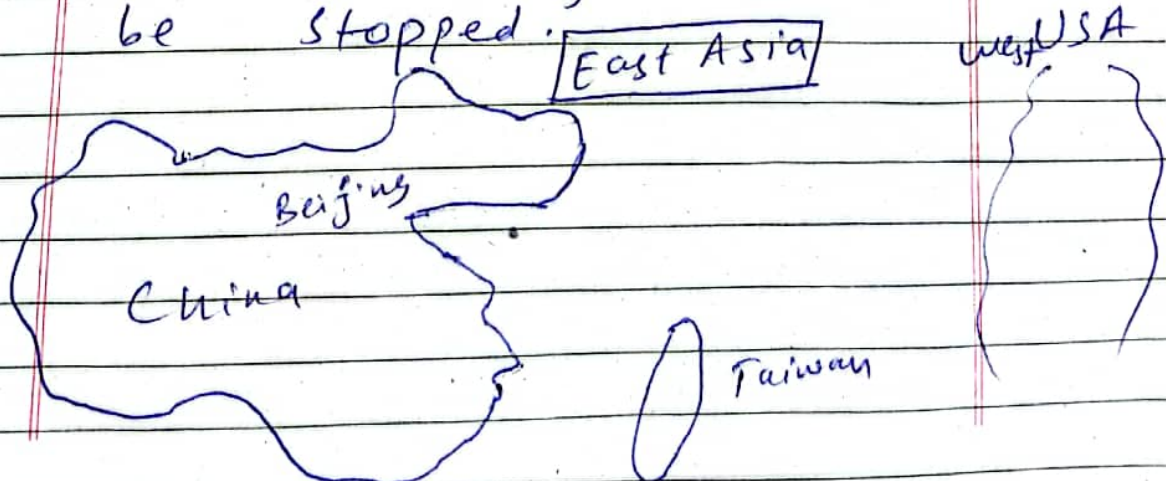 be stopped.
East Asia
West USA
Beijing
China
Taiwan